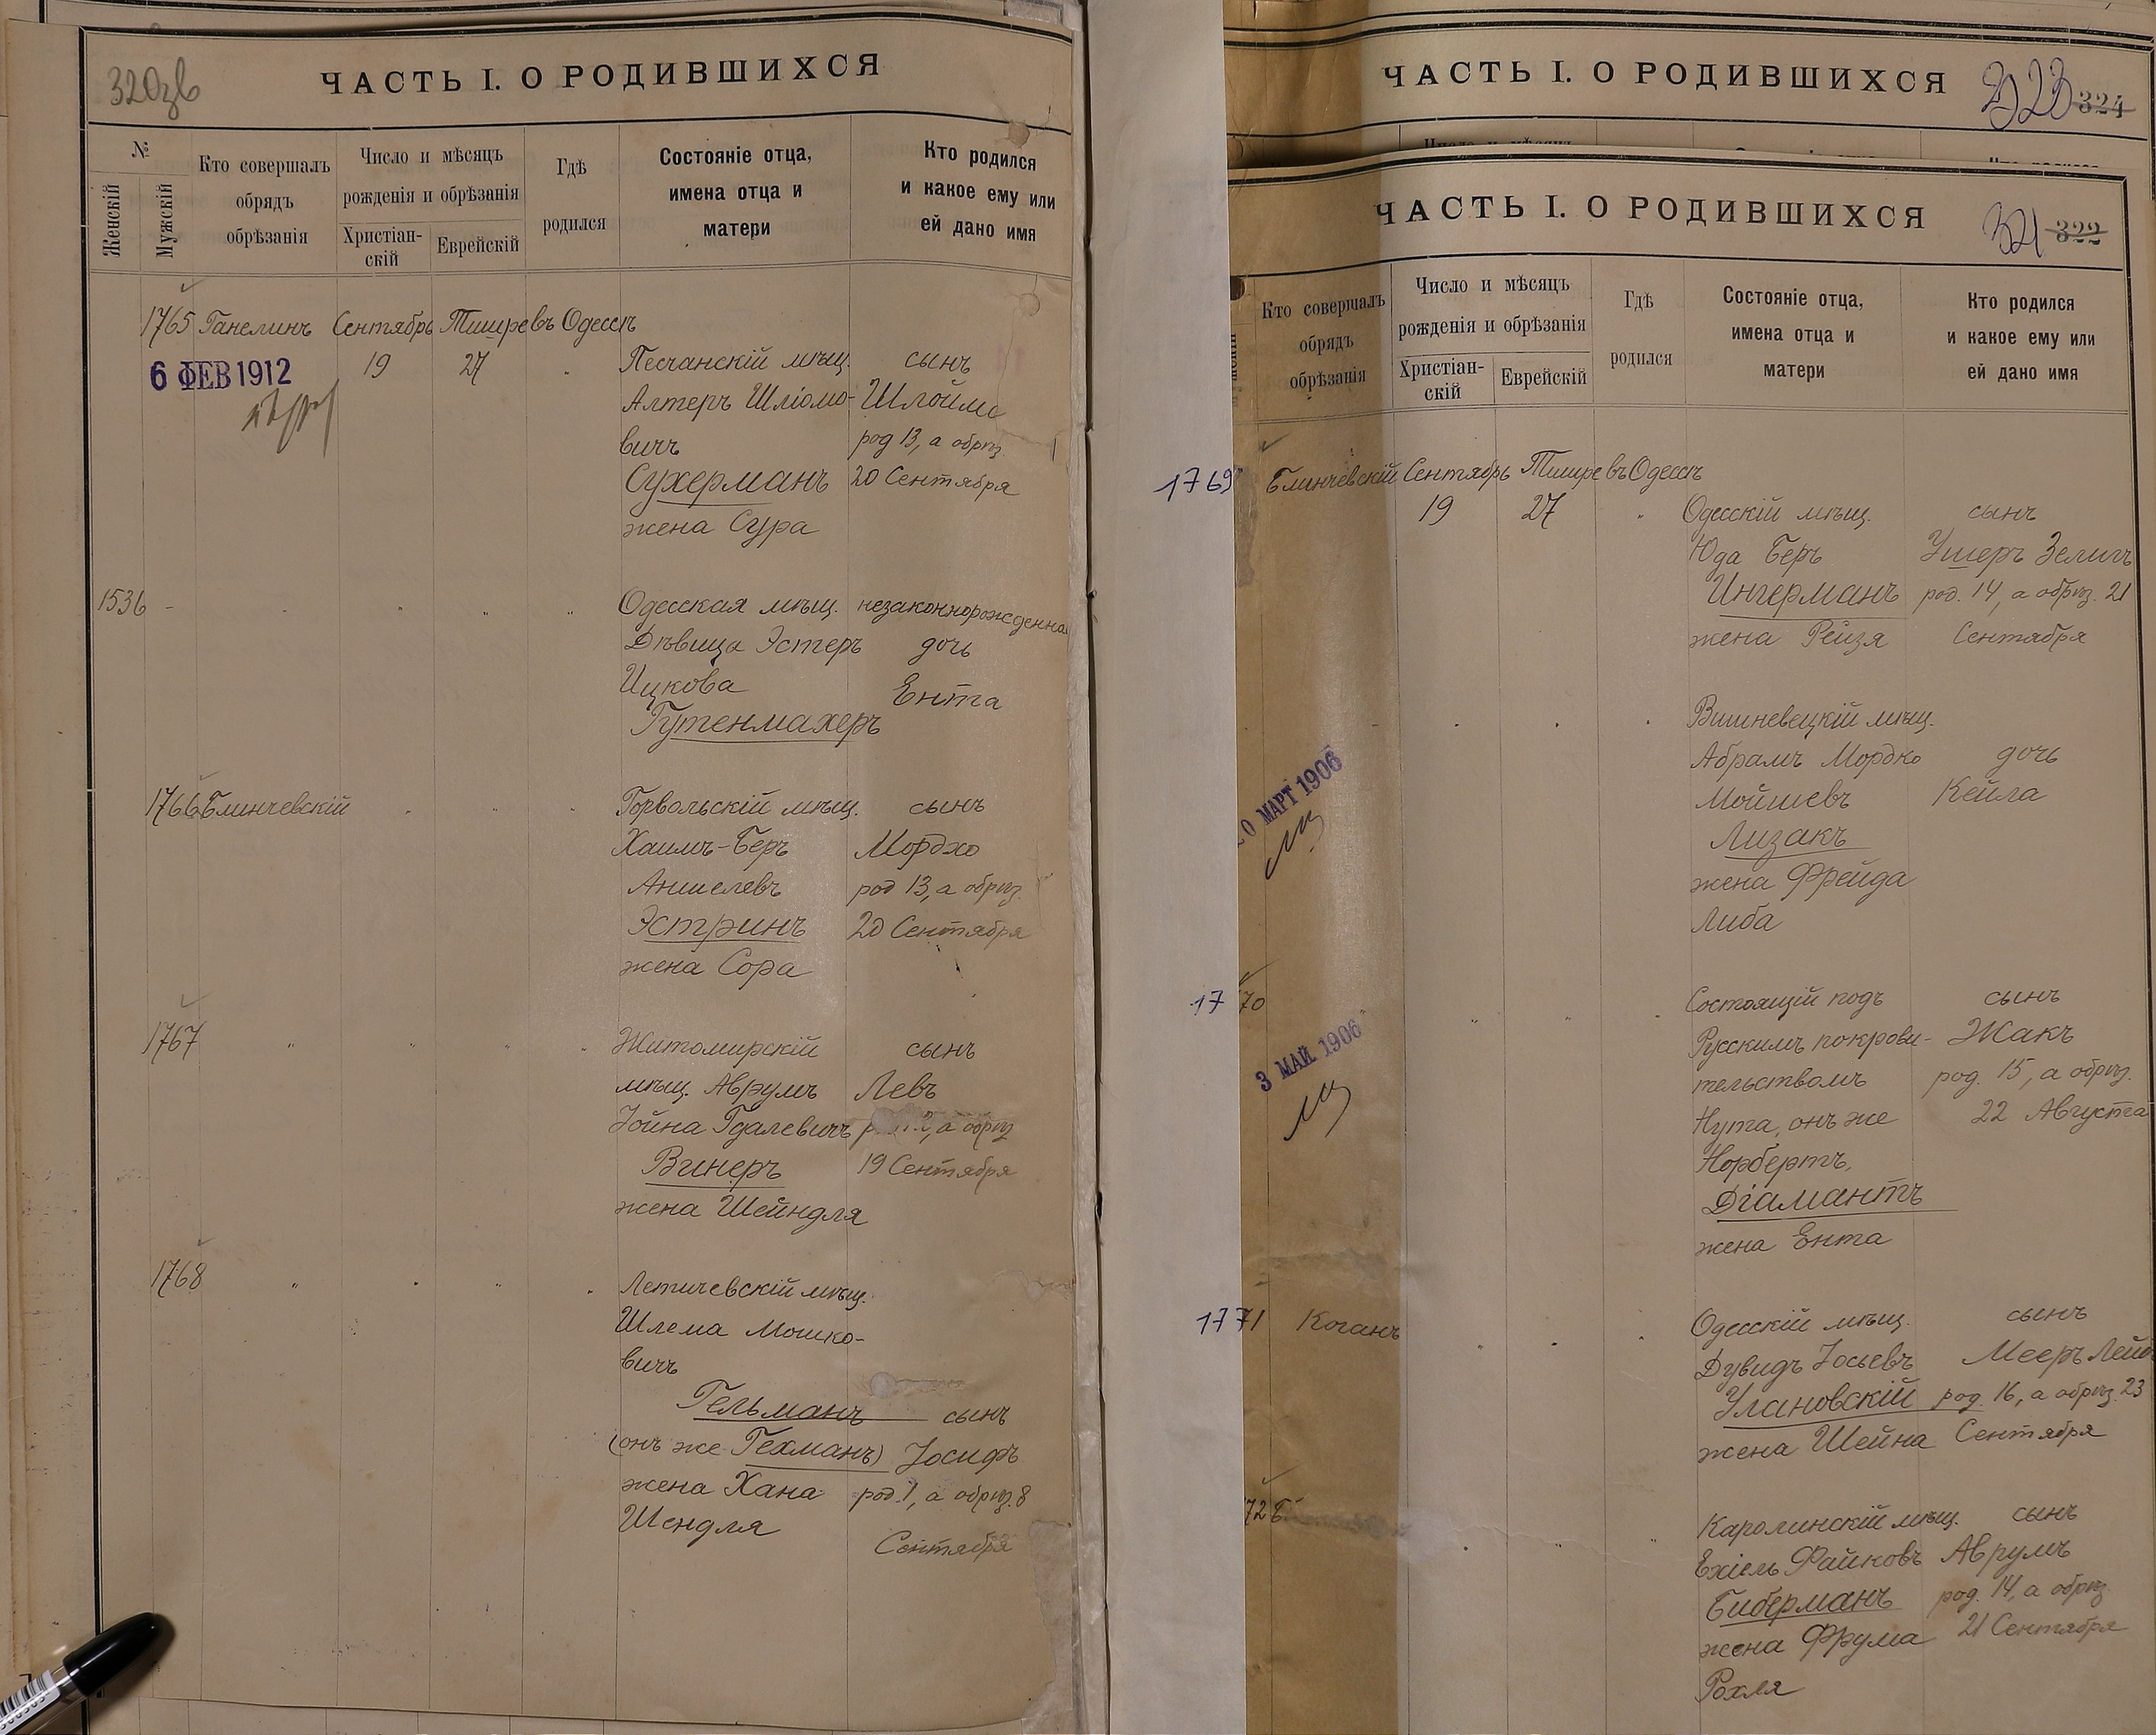 320зв
ЧАСТЬ I. О РОДИВШИХСЯ
№
Женскій
Мужскій
Кто совершалъ
обрядъ
обрѣзанія
Число и мѣсяцъ
рожденія и обрѣзанія
Христіан-
скій
Еврейскій
Гдѣ
родился
Состояніе отца,
имена отца и
матери
Кто родился
и какое ему или
ей дано имя
1765 Ганелинъ Сентябрь Тишре въ Одессѣ
6 ФЕВ 1912
19 27
Песчанскій мѣщ. сынъ
Алтеръ Шліомо- Шлойме
вичъ род 13, а обрѣз
Сухерманъ 20 Сентября
жена Сура
1536 Одесская мѣщ. незаконнорожденна
Дѣвица Эстеръ дочь
Ицкова Ента
Гутенмахеръ
1766 Блинчевскій Горвольскій мѣщ. сынъ
Хаимъ-Беръ Мордхо
Аншелевъ род 13, а обрѣз.
Эстринъ 20 Сентября
жена Сора
1767 Житомирскій сынъ
мѣщ. Аврумъ Левъ
Іойна Гдалевичъ а обрѣз
Винеръ 19 Сентября
жена Шейндля
1768 Летичевскій мѣщ.
Шлема Мошко-
вичъ
Гельманъ сынъ
(онъ же Гехманъ) Іосифъ
жена Хана род. 1, а обрѣз. 8
Шендля Сентября
ЧАСТЬ I. О РОДИВШИХСЯ
323 324
ЧАСТЬ I. О РОДИВШИХСЯ
321 322
Кто совершалъ
обрядъ
обрѣзанія
Число и мѣсяцъ
рожденія и обрѣзанія
Христіан-
скій
Еврейскій
Гдѣ
родился
Состояніе отца,
имена отца и
матери
Кто родился
и какое ему или
ей дано имя
1769 Блинчевскій Сентябрь Тишре въ Одессѣ
19 27 Одесскій мѣщ. сынъ
Юда Беръ Ушеръ Зелигъ
Ингерманъ род. 14, а обрѣз. 21
жена Рейзя Сентября
Вишневецкій мѣщ.
Абрамъ Мордко дочь
Мойшевъ Кейла
20 МАРТ 1906
Лизакъ
жена Фрейда
Либа
1770 Состоящій подъ сынъ
Русскимъ покрови- Жакъ
3 МАЙ 1906
тельствомъ род. 15, а обрѣз.
Нута, онъ же 22 Августа
Норбертъ,
Діамантъ
жена Ента
1771 Коганъ Одесскій мѣщ. сынъ
Дувидъ Іосьевъ Мееръ Лейб
Улановскій род. 16, а обрѣз. 23
жена Шейна Сентября
72 Каролинскій мѣщ. сынъ
Ехіель Файновъ Аврумъ
Биберманъ род. 14, а обрѣз.
жена Фрума 21 Сентября
Рохля